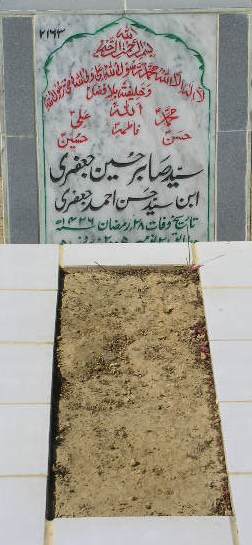 ۲۱۶۳
بسم اللہ الرحمن الرحیم
لا الہ الا اللہ محمد رسول اللہ علی ولی اللہ وصی رسول اللہ
و خلیفتہ بلا فصل
محمدؐ اللہ علیؑ
حسنؑ فاطمہؑ حسینؑ
سید صابر حسین جعفری
ابن سید حسن احمد جعفری
تاریخ وفات ۲۸ رمضان ۱۴۲۶